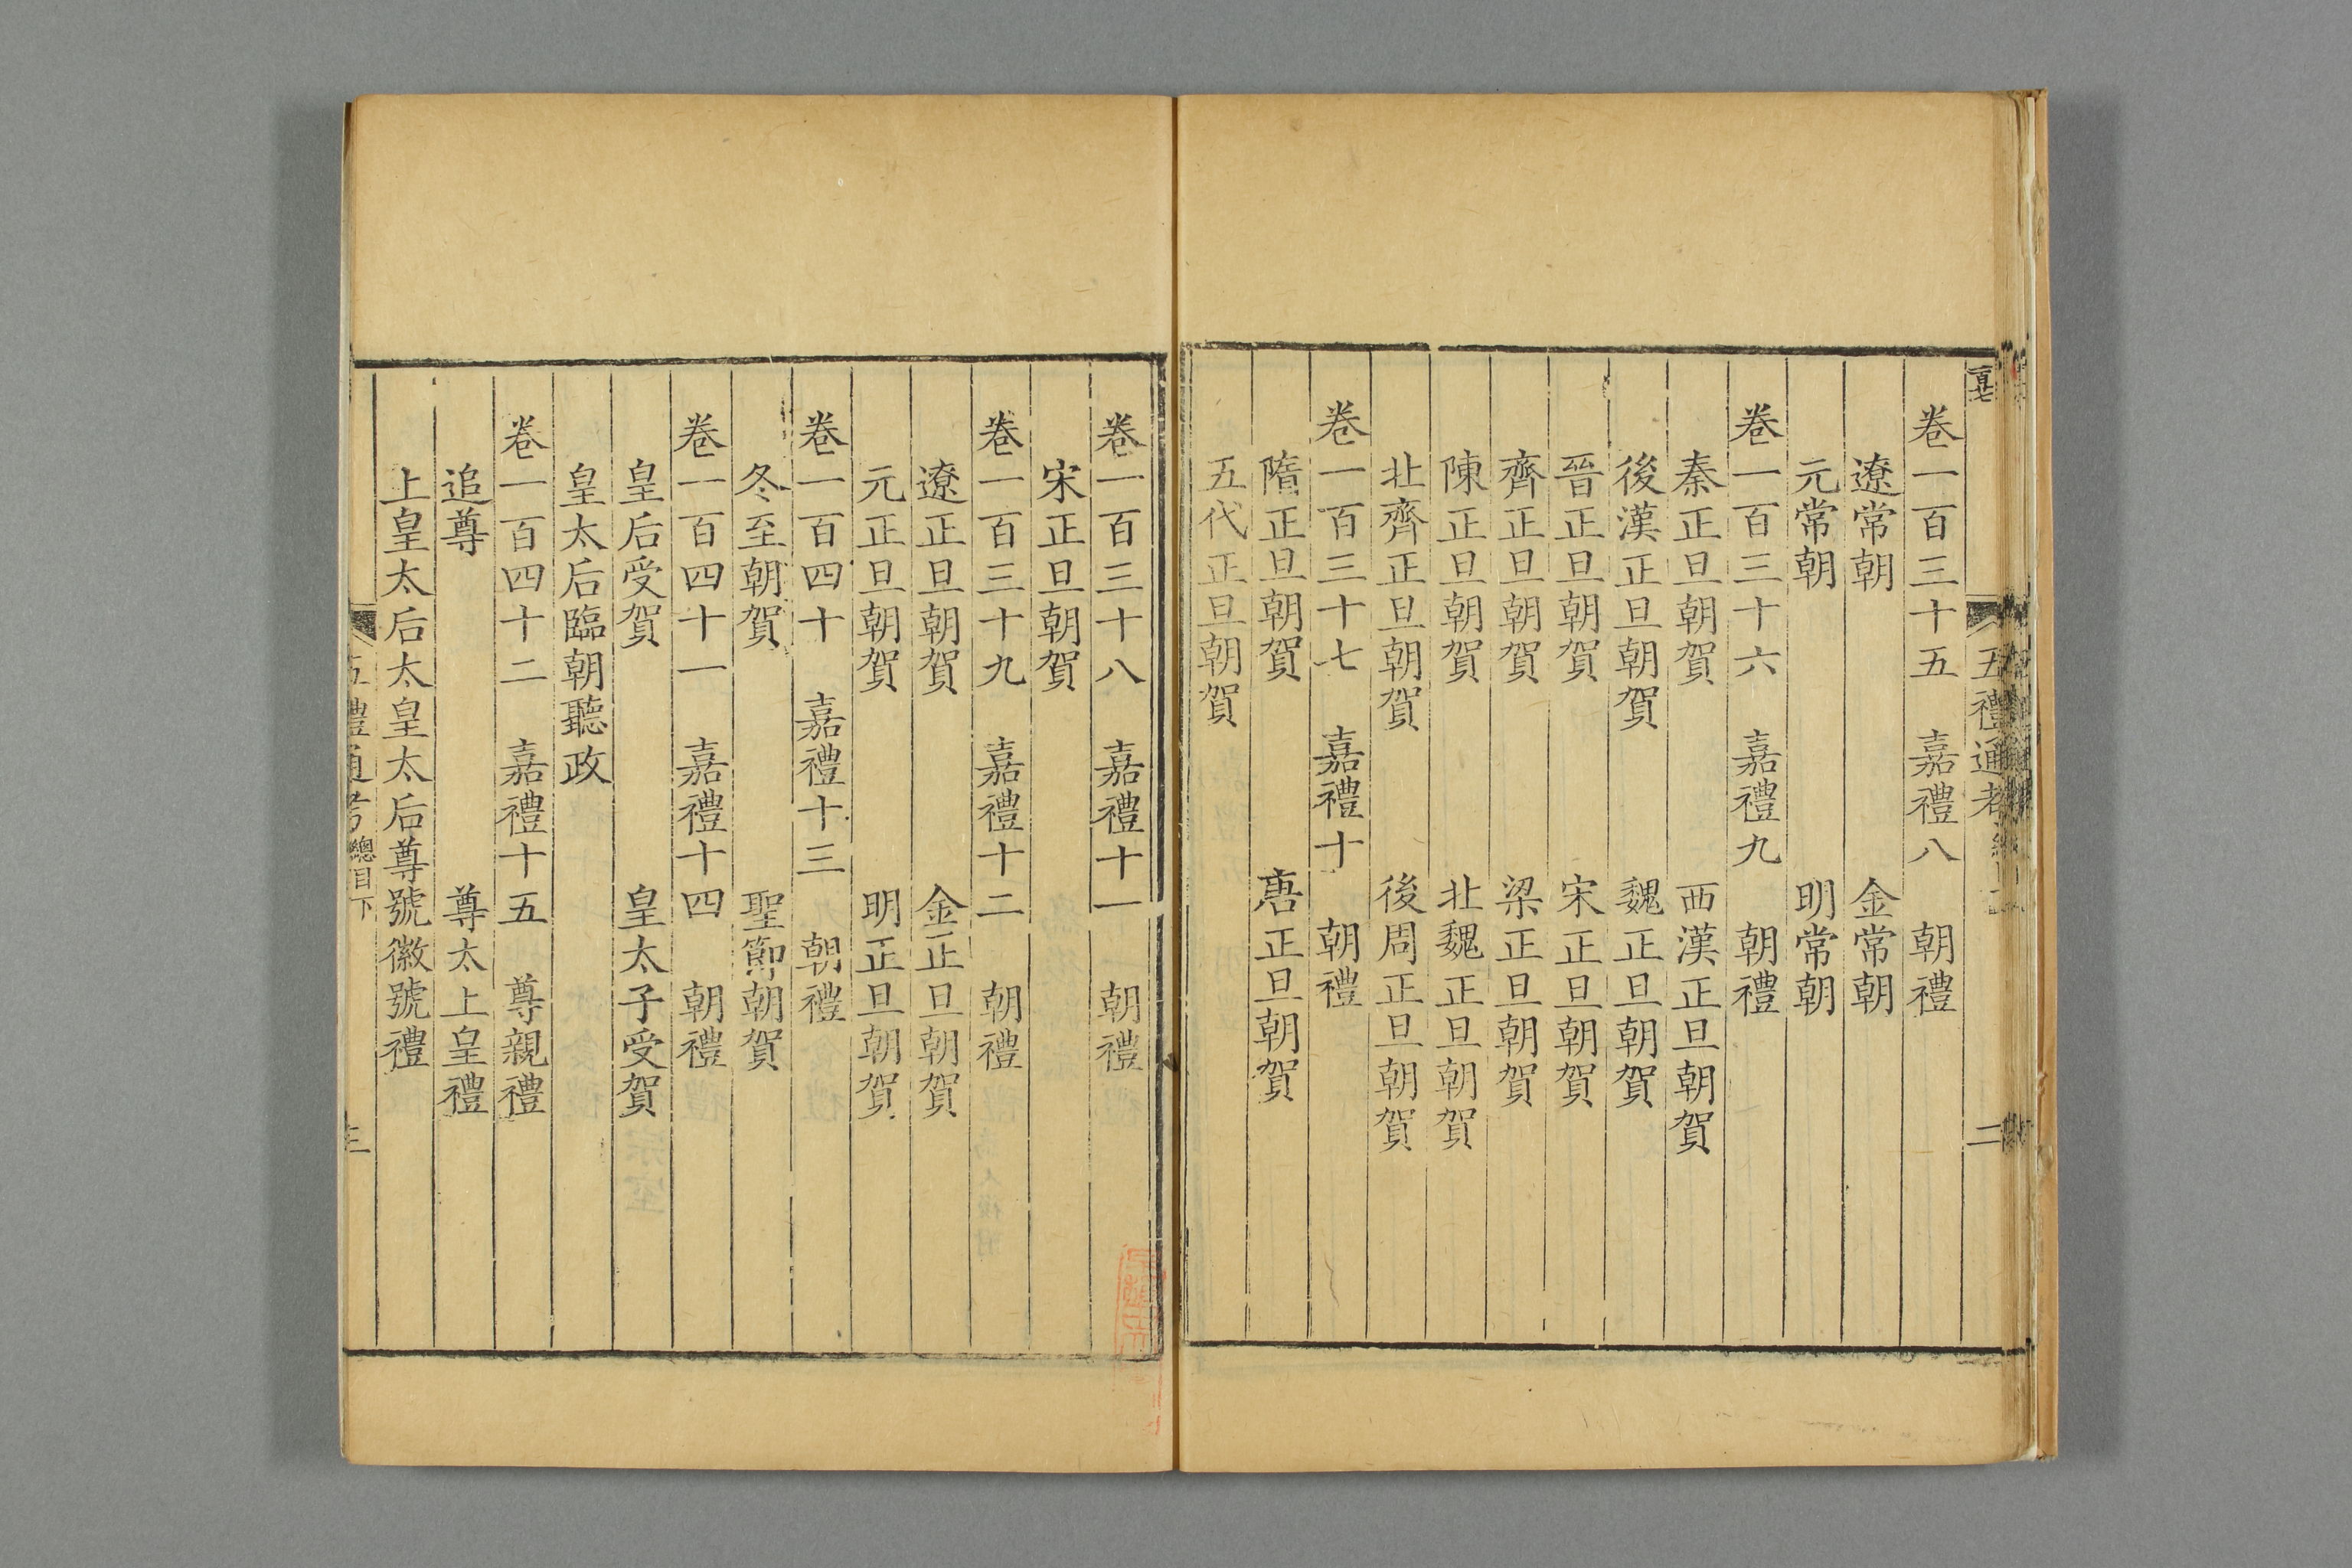 五禮通考
二
卷一百三十五　嘉禮八　朝禮
遼常朝　金常朝
元常朝　明常朝
卷一百三十六　嘉禮九　朝禮
秦正旦朝賀　西漢正旦朝賀
後漢正旦朝賀　魏正旦朝賀
晉正旦朝賀　宋正旦朝賀
齊正旦朝賀　梁正旦朝賀
陳正旦朝賀　北魏正旦朝賀
北齊正旦朝賀　後周正旦朝賀
卷一百三十七　嘉禮十　朝禮
隋正旦朝賀　唐正旦朝賀
五代正旦朝賀
卷一百三十八　嘉禮十一　朝禮
宋正旦朝賀
卷一百三十九　嘉禮十二　朝禮
遼正旦朝賀　金正旦朝賀
元正旦朝賀　明正旦朝賀
卷一百四十　嘉禮十三　朝禮
冬至朝賀　聖節朝賀
卷一百四十一　嘉禮十四　朝禮
皇后受賀　皇太子受賀
皇太后臨朝聽政
卷一百四十二　嘉禮十五　尊親禮
追尊　尊太上皇禮
上皇太后太皇太后尊號徽號禮
五禮通考總目下
三